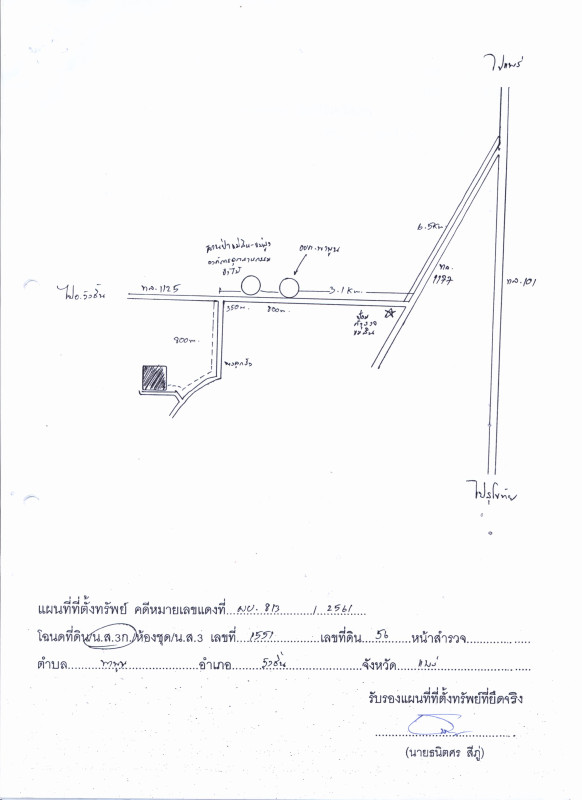 ไปแพร่
6.5 Km
ทล.
1177
ทล. 101
อบต.นาพูน
3.1 Km.
ทล. 1125
ไปอ.วังชิ้น
350m.
800m.
ป้อม
ตำรวจ
900m.
ทางลูกรัง
ไปสุโขทัย
แผนที่ที่ตั้งทรัพย์ คดีหมายเลขแดงที่ ผบ. 813 / 2561
โฉนดที่ดิน/น.ส.3ก./ห้องชุด/น.ส.3 เลขที่ 1551 เลขที่ดิน 56 หน้าสำรวจ
ตำบล นาพูน อำเภอ วังชิ้น จังหวัด แพร่
รับรองแผนที่ที่ตั้งทรัพย์ที่ยึดจริง
(นายธนิตศร สีภู่)